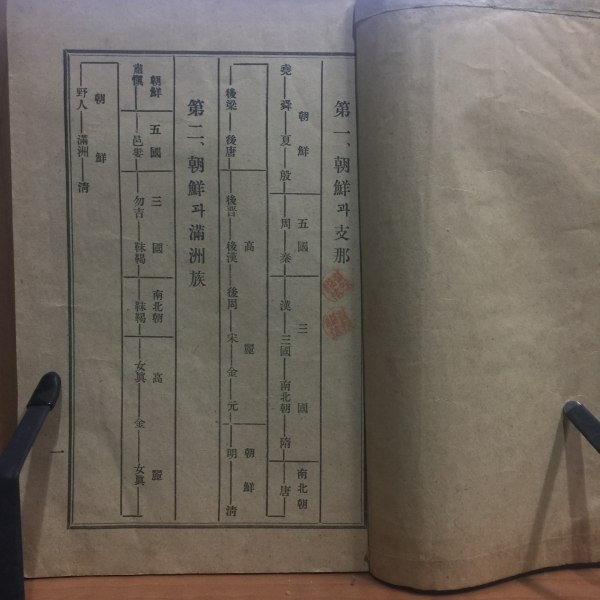 第一、朝鮮과支那
朝鮮 五國 三國 南北朝
堯 舜 夏 殷 周 秦 漢 三國 南北朝 隋 唐
高麗 朝鮮
後梁 後唐 後晋 後漢 後周 宋 金 元 明 淸
第二、朝鮮과滿洲族
朝鮮 五國 三國 南北朝 高麗
肅愼 邑婁 勿吉 靺鞨 靺鞨 女眞 金 女眞
朝鮮
野人 滿洲 淸
一